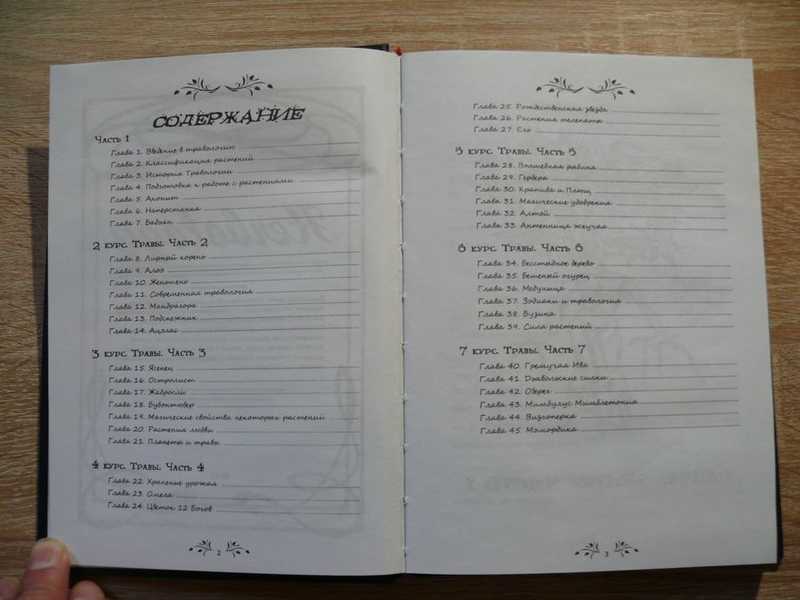 СОДЕРЖАНИЕ
Часть 1
Глава 1. Введение в травологию
Глава 2. Классификация растений
Глава 3. История Травологии
Глава 4. Подготовка к работе с растениями
Глава 5. Аконит
Глава 6. Наперстянка
Глава 7. Бадьян
2 курс. Травы. Часть 2
Глава 8. Лирный корень
Глава 9. Алоэ
Глава 10. Женьшень
Глава 11. Современная травология
Глава 12. Мандрагора
Глава 13. Подснежник
Глава 14.
3 курс. Травы. Часть 3
Глава 15. Ясенец
Глава 16. Остролист
Глава 17. Жабросли
Глава 18. Бубонтюбер
Глава 19. Магические свойства некоторых растений
Глава 20. Растения любви
Глава 21. Планеты и травы
4 курс. Травы. Часть 4
Глава 22. Хранение урожая
Глава 23. Омела
Глава 24. Цветок 12 Богов
2
Глава 25. Рождественская звезда
Глава 26. Растения телепата
Глава 27. Сго
5 курс. Травы. Часть 5
Глава 28. Волшебная рябина
Глава 29. Гербера
Глава 30. Крапива и Плющ
Глава 31. Магические удобрения
Глава 32. Алтей
Глава 33. Антенница жгучая
6 курс. Травы. Часть 6
Глава 34. Бесстыдное дерево
Глава 35. Бешеный огурец
Глава 36. Медуница
Глава 37. Зодиаки и травология
Глава 38. Бузина
Глава 39. Сила растений
7 курс. Травы. Часть 7
Глава 40. Гремучая Ива
Глава 41. Дьявольские силки
Глава 42. Оберег
Глава 43. Мимбулус Мимблетония
Глава 44. Визгоперка
Глава 45. Момордика
3